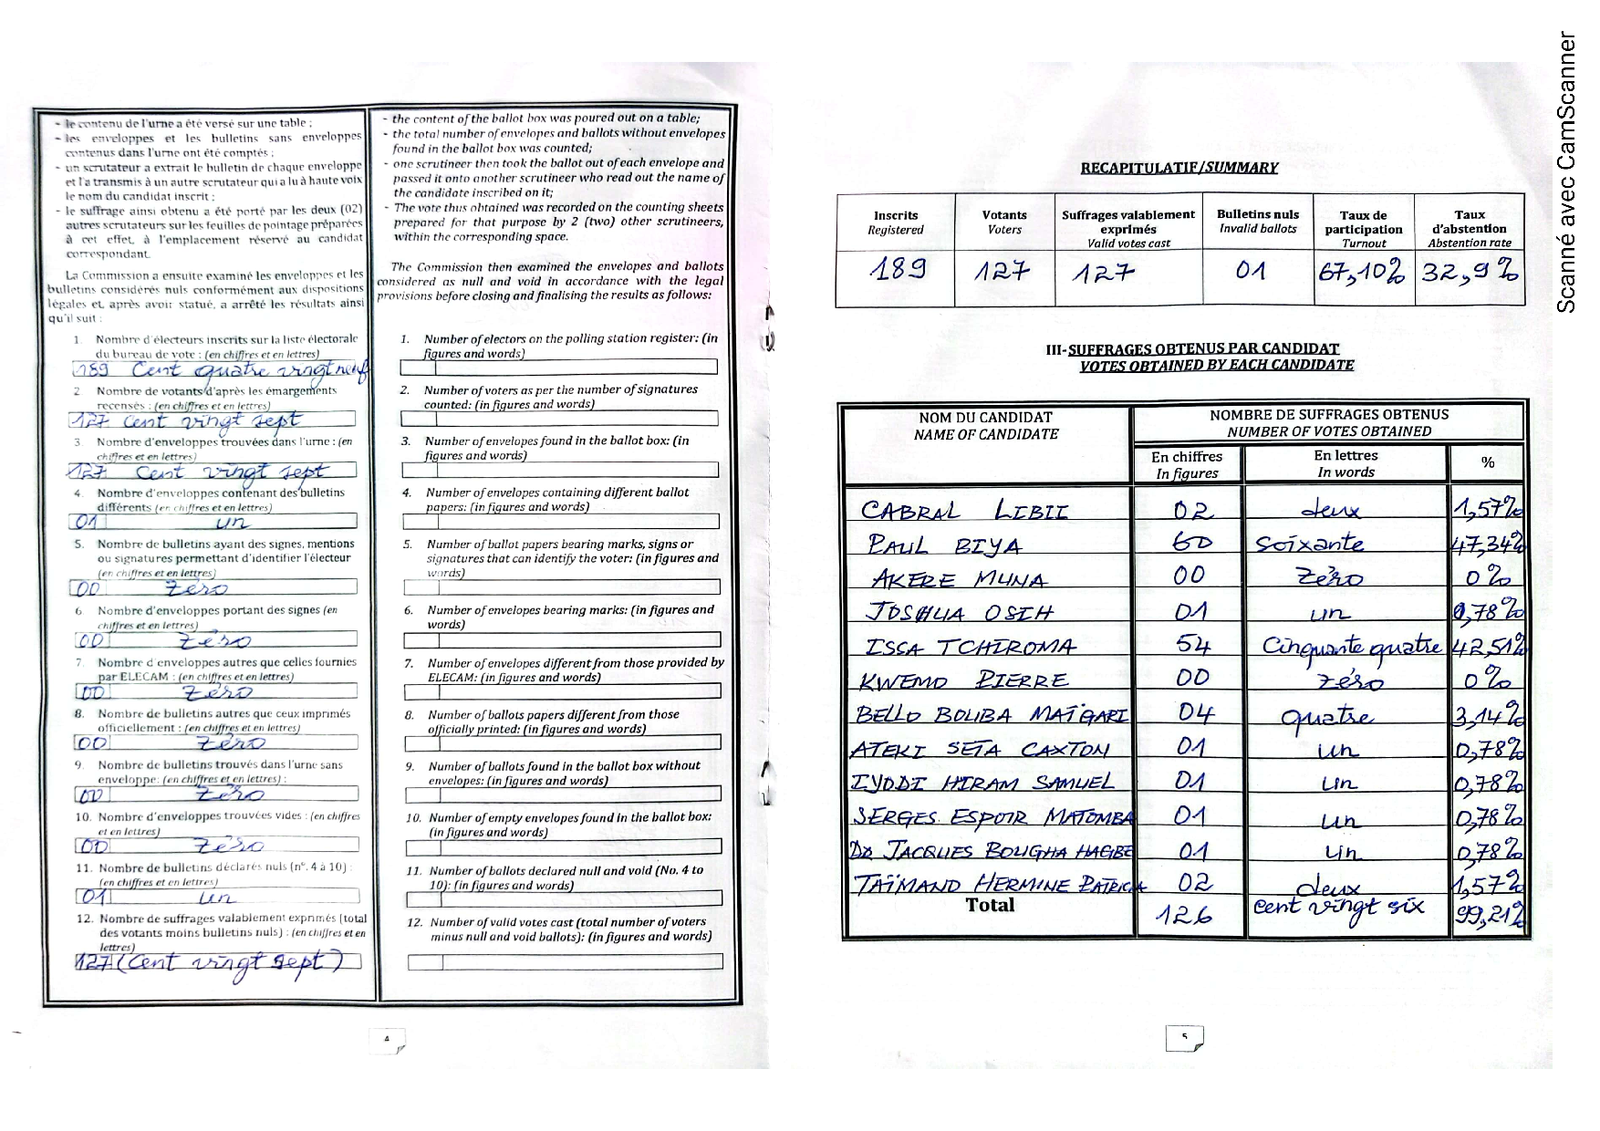 - le contenu de l'urne a été versé sur une table ;
- les enveloppes et les bulletins sans enveloppes
contenus dans l'urne ont été comptés ;
- un scrutateur a extrait le bulletin de chaque enveloppe
et l'a transmis à un autre scrutateur qui a lu à haute voix
le nom du candidat inscrit ;
- le suffrage ainsi obtenu a été porté par les deux (02)
autres scrutateurs sur les feuilles de pointage préparées
à cet effet, à l'emplacement réservé au candidat
correspondant.
La Commission a ensuite examiné les enveloppes et les
bulletins considérés nuls conformément aux dispositions
légales et, après avoir statué, a arrêté les résultats ainsi
qu'il suit :
1. Nombre d'électeurs inscrits sur la liste électorale
du bureau de vote : (en chiffres et en lettres)
189 Cent quatre vingt neuf
2. Nombre de votants d'après les émargements
recensés : (en chiffres et en lettres)
127 cent vingt sept
3. Nombre d'enveloppes trouvées dans l'urne : (en
chiffres et en lettres)
127 Cent vingt sept
4. Nombre d'enveloppes contenant des bulletins
différents (en chiffres et en lettres)
01 un
5. Nombre de bulletins ayant des signes, mentions
ou signatures permettant d'identifier l'électeur
(en chiffres et en lettres)
00 Zéro
6. Nombre d'enveloppes portant des signes (en
chiffres et en lettres)
00 Zéro
7. Nombre d'enveloppes autres que celles fournies
par ELECAM : (en chiffres et en lettres)
00 Zéro
8. Nombre de bulletins autres que ceux imprimés
officiellement : (en chiffres et en lettres)
00 Zéro
9. Nombre de bulletins trouvés dans l'urne sans
enveloppe: (en chiffres et en lettres) :
00 Zéro
10. Nombre d'enveloppes trouvées vides : (en chiffres
et en lettres)
00 Zéro
11. Nombre de bulletins déclarés nuls (n°. 4 à 10) :
(en chiffres et en lettres)
01 un
12. Nombre de suffrages valablement exprimés (total
des votants moins bulletins nuls) : (en chiffres et en
lettres)
127 (Cent vingt sept)
- the content of the ballot box was poured out on a table;
- the total number of envelopes and ballots without envelopes
found in the ballot box was counted;
- one scrutineer then took the ballot out of each envelope and
passed it onto another scrutineer who read out the name of
the candidate inscribed on it;
- The vote thus obtained was recorded on the counting sheets
prepared for that purpose by 2 (two) other scrutineers,
within the corresponding space.
The Commission then examined the envelopes and ballots
considered as null and void in accordance with the legal
provisions before closing and finalising the results as follows:
1. Number of electors on the polling station register: (in
figures and words)
2. Number of voters as per the number of signatures
counted: (in figures and words)
3. Number of envelopes found in the ballot box: (in
figures and words)
4. Number of envelopes containing different ballot
papers: (in figures and words)
5. Number of ballot papers bearing marks, signs or
signatures that can identify the voter: (in figures and
words)
6. Number of envelopes bearing marks: (in figures and
words)
7. Number of envelopes different from those provided by
ELECAM: (in figures and words)
8. Number of ballots papers different from those
officially printed: (in figures and words)
9. Number of ballots found in the ballot box without
envelopes: (in figures and words)
10. Number of empty envelopes found in the ballot box:
(in figures and words)
11. Number of ballots declared null and void (No. 4 to
10): (in figures and words)
12. Number of valid votes cast (total number of voters
minus null and void ballots): (in figures and words)
4
RECAPITULATIF/SUMMARY
Inscrits Votants Suffrages valablement Bulletins nuls Taux de Taux
Registered Voters exprimés Invalid ballots participation d'abstention
Valid votes cast Turnout Abstention rate
189 127 127 01 67,10% 32,9%
III- SUFFRAGES OBTENUS PAR CANDIDAT
VOTES OBTAINED BY EACH CANDIDATE
NOM DU CANDIDAT NOMBRE DE SUFFRAGES OBTENUS
NAME OF CANDIDATE NUMBER OF VOTES OBTAINED
En chiffres En lettres %
In figures In words
CABRAL LIBII 02 deux 1,57%
PAUL BIYA 60 Soixante 47,34%
AKERE MUNA 00 Zéro 0%
JOSHUA OSIH 01 un 0,78%
ISSA TCHIROMA 54 Cinquante quatre 42,51%
KWEMO PIERRE 00 zéro 0%
BELLO BOUBA MAÏGARI 04 quatre 3,14%
ATEKI SETA CAXTON 01 un 0,78%
IYODI HIRAM SAMUEL 01 un 0,78%
SERGES ESPOIR MATOMBA 01 un 0,78%
Dr JACQUES BOUGHA HAGBE 01 un 0,78%
TAÏMAND HERMINE PATRICIA 02 deux 1,57%
Total 126 cent vingt six 99,21%
5
Scanné avec CamScanner